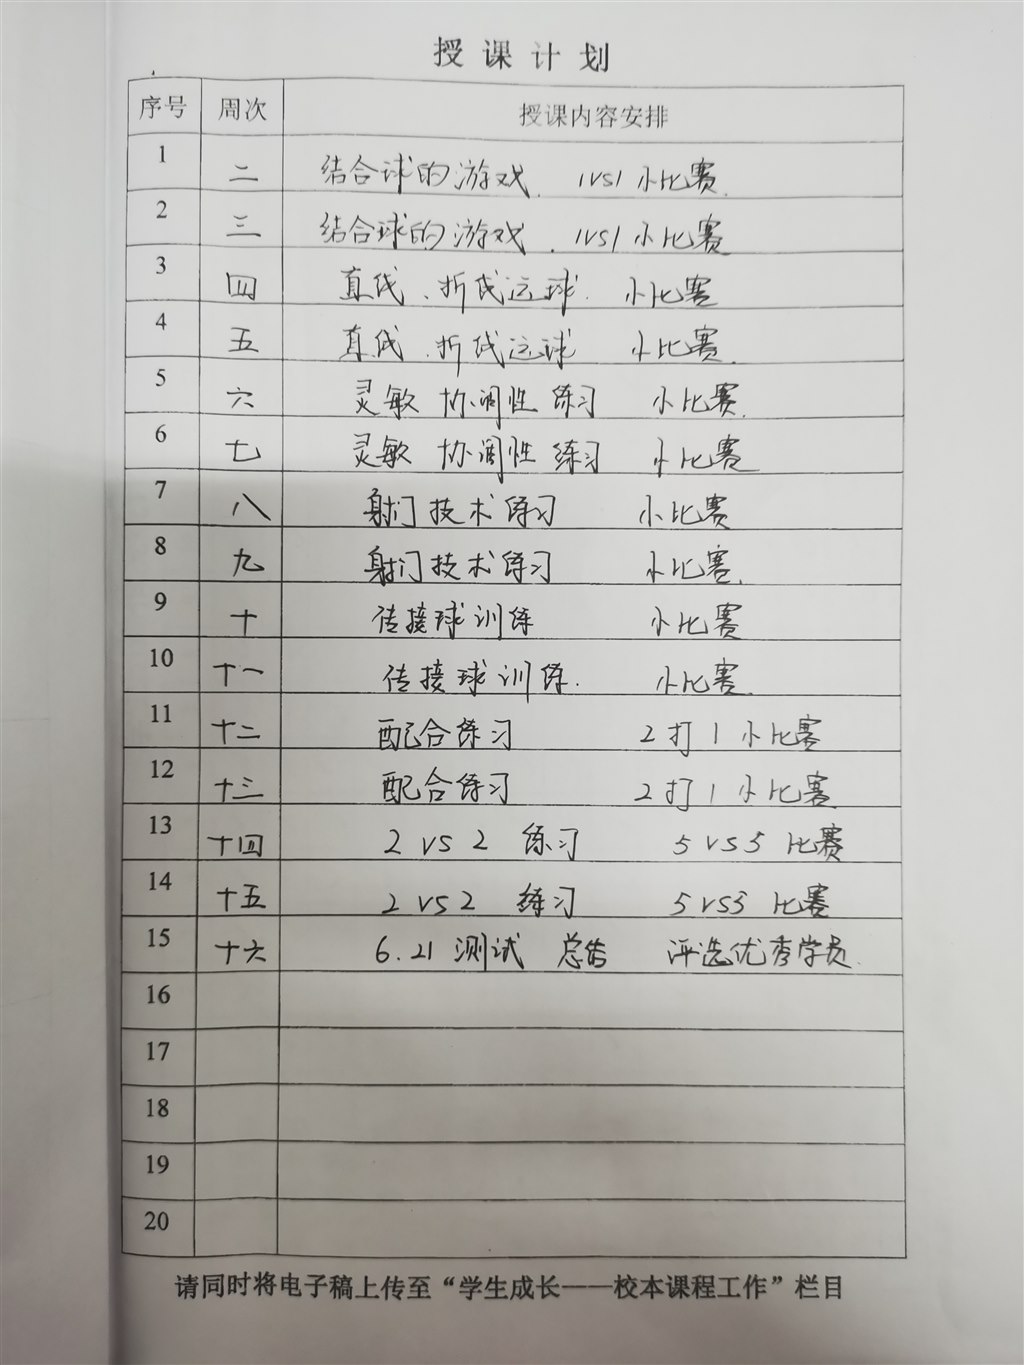 授课计划
序号 周次 授课内容安排
1 二 结合球的游戏. 1vs1 小比赛.
2 三 结合球的游戏. 1vs1 小比赛
3 四 直线、折线运球. 小比赛
4 五 直线、折线运球 小比赛.
5 六 灵敏 协调性 练习 小比赛.
6 七 灵敏 协调性 练习 小比赛
7 八 射门技术练习 小比赛
8 九 射门技术练习 小比赛.
9 十 传接球训练 小比赛
10 十一 传接球训练. 小比赛.
11 十二 配合练习 2打1 小比赛
12 十三 配合练习 2打1 小比赛
13 十四 2 vs 2 练习 5 vs 5 比赛
14 十五 2 vs 2 练习 5 vs 5 比赛
15 十六 6.21 测试 总结 评选优秀学员.
16
17
18
19
20
请同时将电子稿上传至“学生成长——校本课程工作”栏目